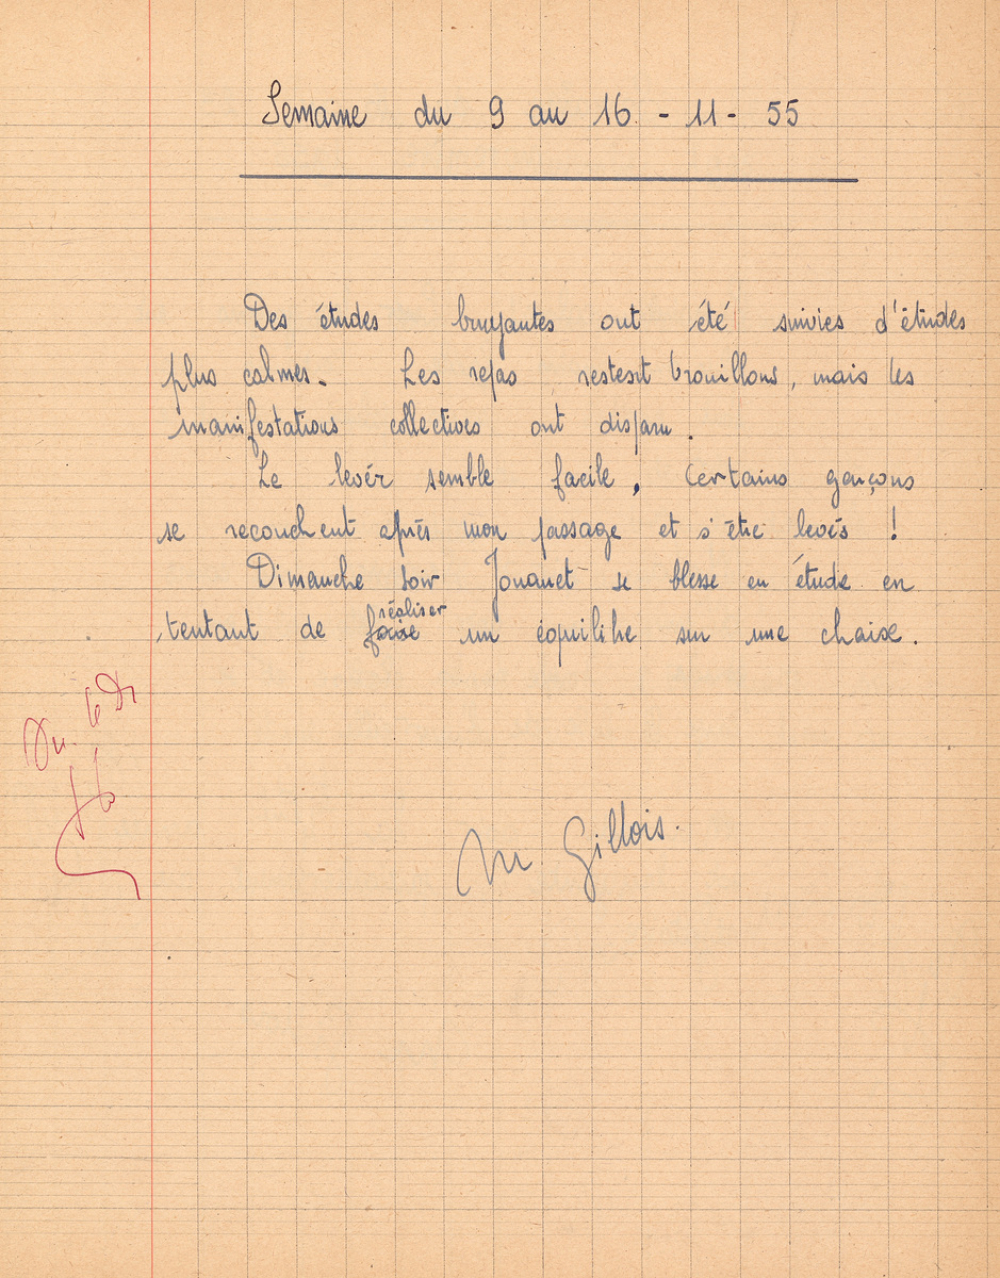 Semaine du 9 au 16 - 11 - 55
Des études bruyantes ont été suivies d'études
plus calmes. Les repas restent brouillons, mais les
manifestations collectives ont disparu.
Le levér semble facile, certains garçons
se recouchent après mon passage et s'être levés !
Dimanche soir Jouanet se blesse en étude en
réaliser
tentant de faire un équilibre sur une chaise.
Vu. le Dr
M. Gillois.